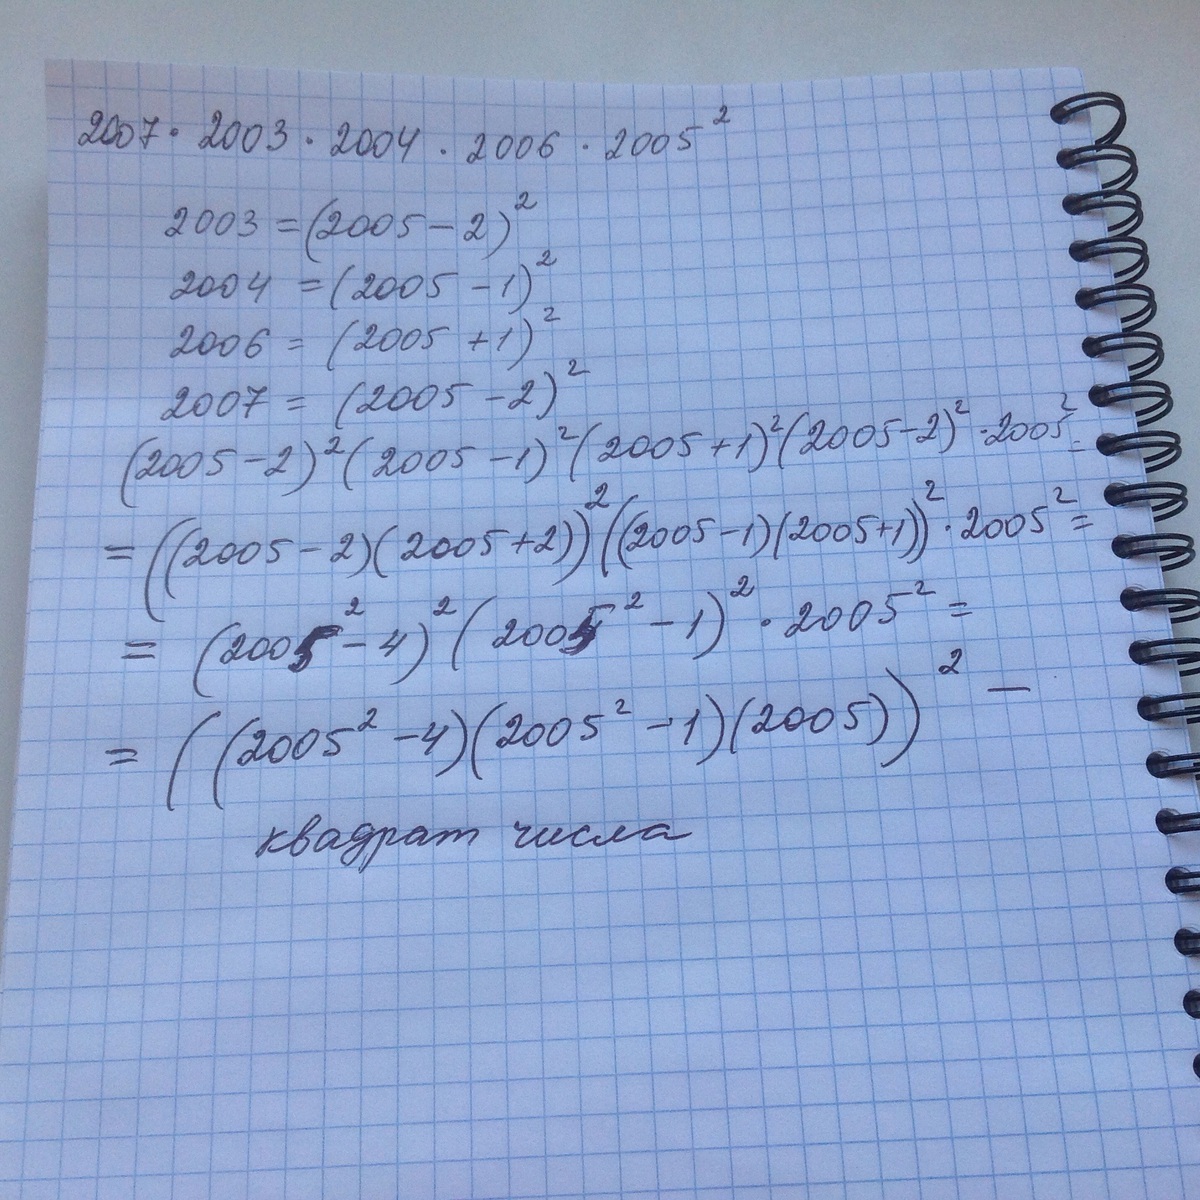 2007 · 2003 · 2004 · 2006 · 2005²
2003 = (2005 – 2)²
2004 = (2005 – 1)²
2006 = (2005 + 1)²
2007 = (2005 – 2)²
(2005 – 2)² (2005 – 1)² (2005 + 1)² (2005 – 2)² · 2005² =
= ((2005 – 2)(2005 + 2))² ((2005 – 1)(2005 + 1))² · 2005² =
= (2005² – 4)² (2005² – 1)² · 2005² =
= ((2005² – 4)(2005² – 1)(2005))² —
квадрат числа